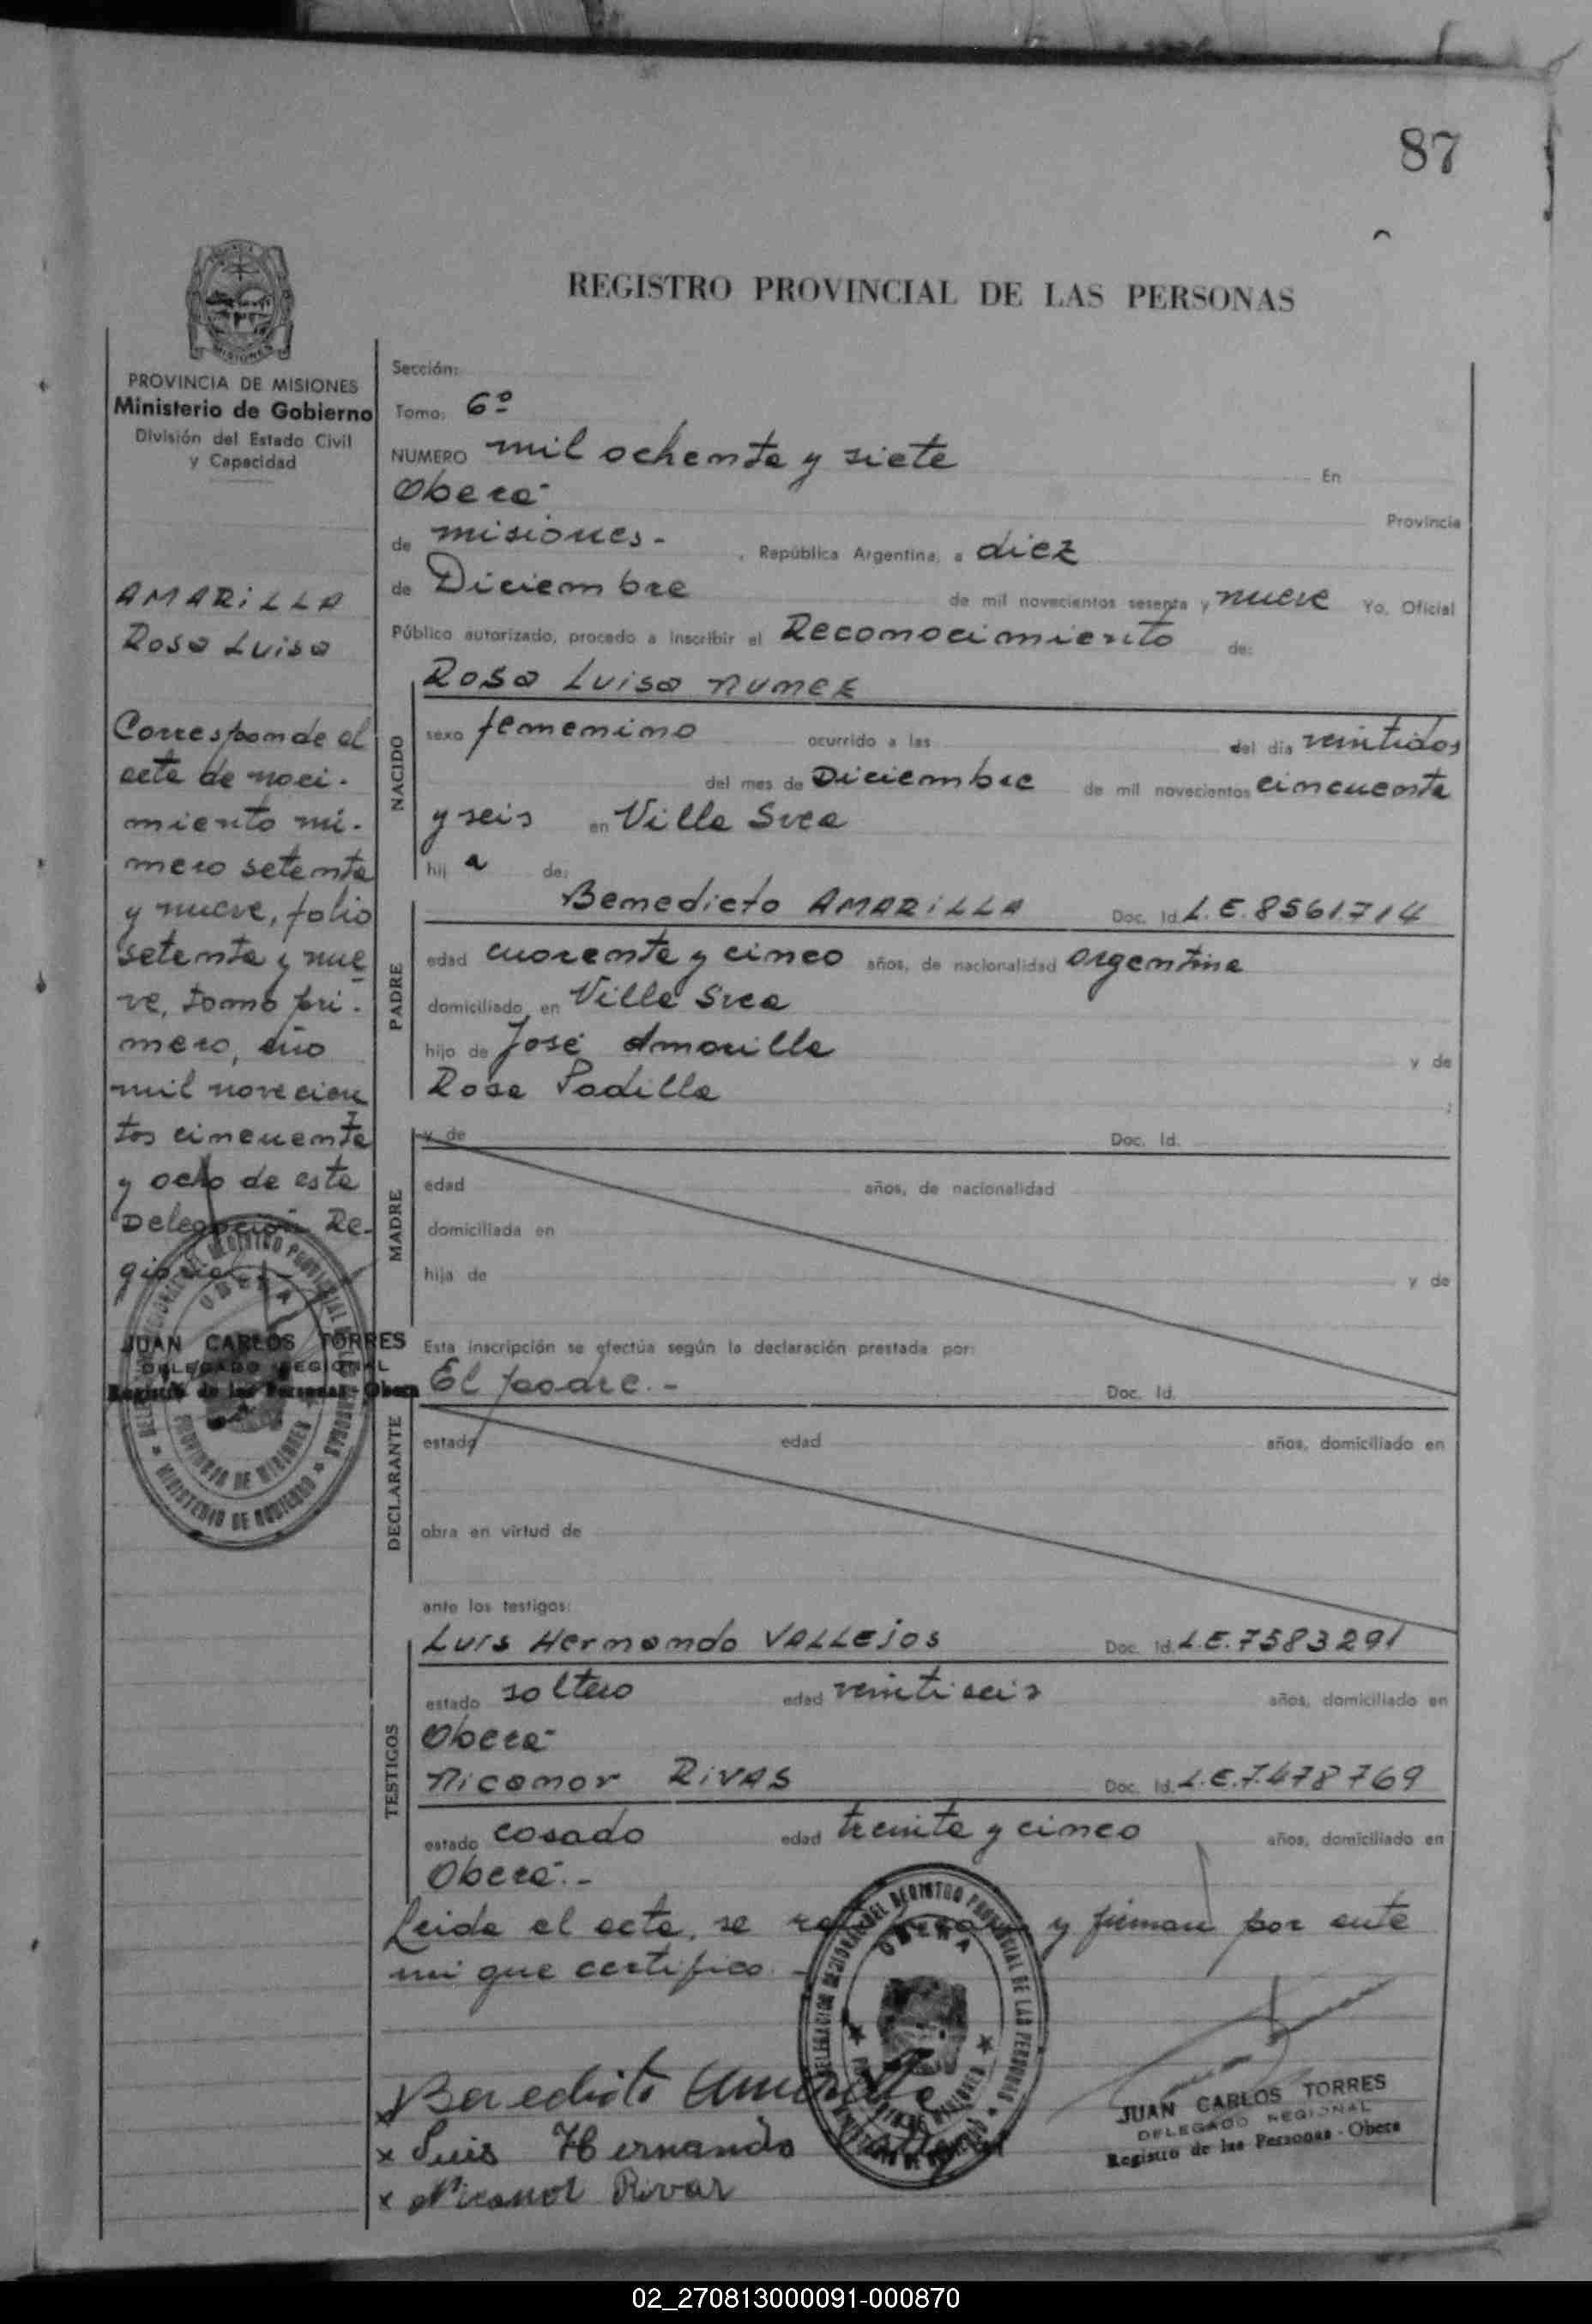 87
REGISTRO PROVINCIAL DE LAS PERSONAS
PROVINCIA DE MISIONES
Ministerio de Gobierno
División del Estado Civil
y Capacidad
AMARILLA
Rosa Luisa
Corresponde al
acta de naci-
miento nú-
mero setenta
y nueve, folio
setenta y nue
ve, tomo pri-
mero, año
mil novecien
tos cincuenta
y ocho de esta
Delegación Re-
gional
JUAN CARLOS TORRES
DELEGADO REGIONAL
Registro de las Personas - Obera
Sección:
Tomo: 6º
NUMERO mil ochenta y siete En
Oberá
Provincia
de misiones.- , República Argentina, a diez
de Diciembre de mil novecientos sesenta y nueve Yo, Oficial
Público autorizado, procedo a inscribir el Reconocimiento de:
NACIDO
Rosa Luisa NUNEZ
sexo femenino ocurrido a las del día veintidos
del mes de Diciembre de mil novecientos cincuenta
y seis en Villa Svea
hij a de:
PADRE
Benedicto AMARILLA Doc. Id. L.E. 8561.714
edad cuarenta y cinco años, de nacionalidad argentina
domiciliado en Villa Svea
hijo de José Amarilla y de
Rosa Padilla ;
MADRE
y de Doc. Id.
edad años, de nacionalidad
domiciliada en
hija de y de
Esta inscripción se efectúa según la declaración prestada por:
DECLARANTE
El padre.- Doc. Id.
estado edad años, domiciliado en
obra en virtud de
ante los testigos:
TESTIGOS
Luis Hernando VALLEJOS Doc. Id. L.E. 7583291
estado soltero edad veintiseis años, domiciliado en
Oberá
Nicanor RIVAS Doc. Id. L.E. 7.478769
estado casado edad treinta y cinco años, domiciliado en
Oberá.-
Leída el acta, se y firman por ante
mi que certifico.-
x Benedicto Amarilla
x Luis Hernando
x Nicanor Rivas
DELEGACION REGIONAL DEL REGISTRO PROVINCIAL DE LAS PERSONAS
OBERA
PROVINCIA DE MISIONES
MINISTERIO DE GOBIERNO
JUAN CARLOS TORRES
DELEGADO REGIONAL
Registro de las Personas - Obera
02_270813000091-000870